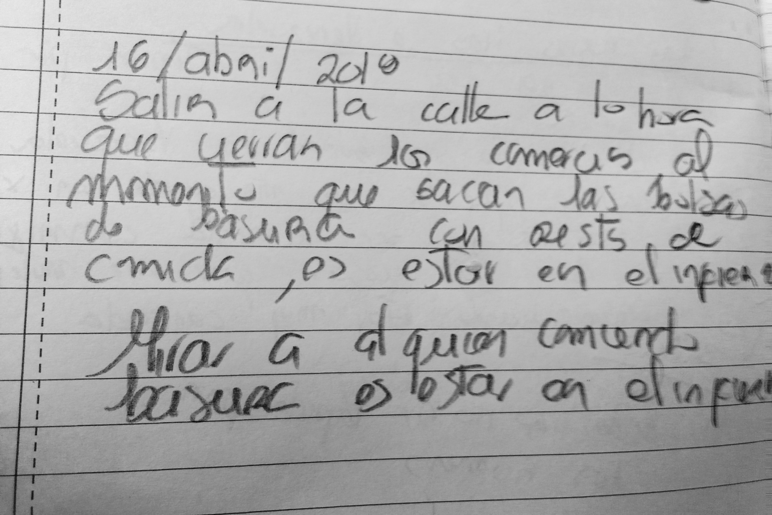 16/abril/2019
Salir a la calle a la hora
que yerran los comercios al
momento que sacan las bolsas
de basura con rests de
comida, es estar en el infiern
Mirar a alguien comiendo
basura es estar en el infier